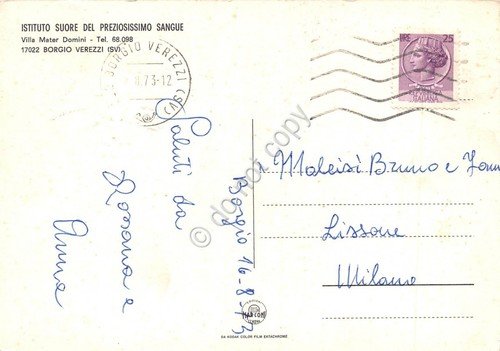 ISTITUTO SUORE DEL PREZIOSISSIMO SANGUE
Villa Mater Domini - Tel. 68.098
17022 BORGIO VEREZZI (SV)
BORGIO VEREZZI (SV)
73-12
25
Saluti da
Rossana e
Anna
Borgio 16-8-73
Maleisi Bruno e
Lissone
Milano
DA KODAK COLOR FILM EKTACHROME
do not copy